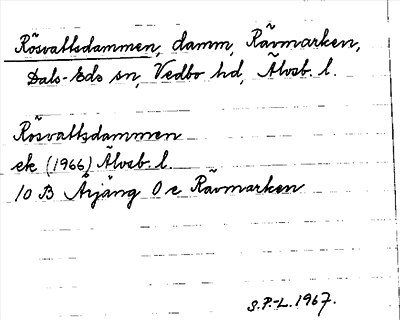 Rösvattsdammen, damm, Rävmarken,
Dals-Eds sn, Vedbo hd, Älvsb. l.
Rösvattsdammen
ek (1966) Älvsb. l.
10 B Årjäng 0 e Rävmarken
S.P.-L. 1967.